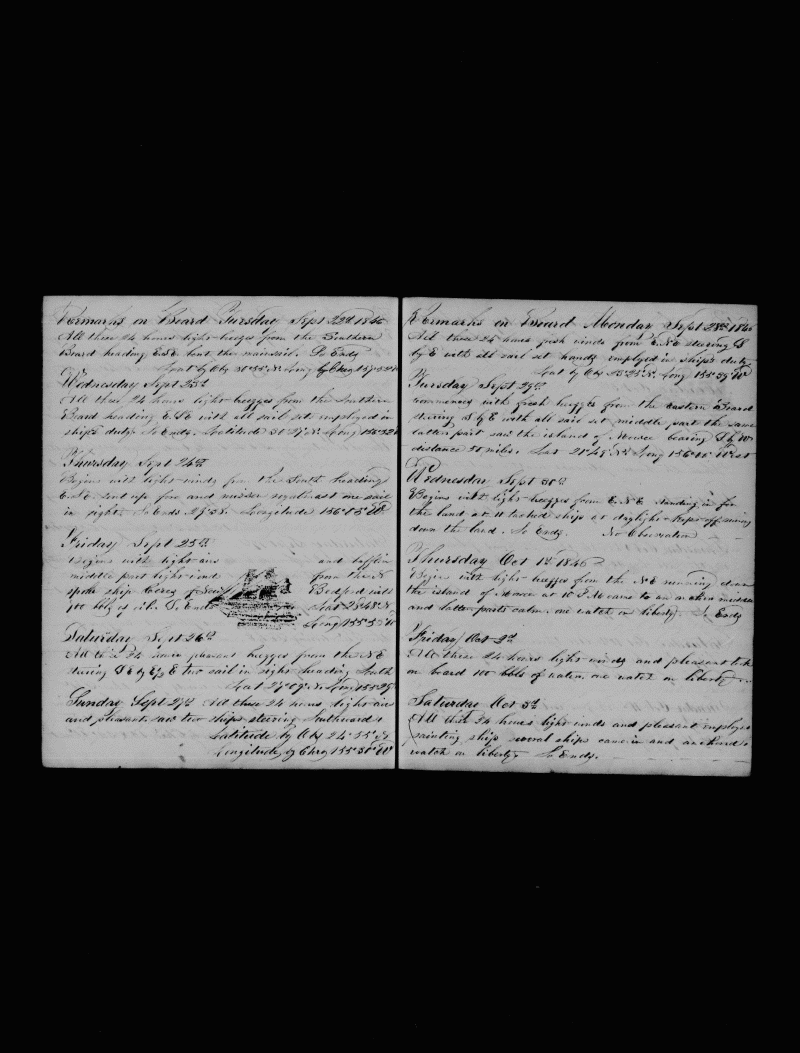 Remarks on Board Tuesday Sept 22d 1846
All these 24 hours light breezes from the Southern
Board heading ESE bent the mainsail. So Ends
Lat by Obs 31°55' N. Long by Chro 157°32'
Wednesday Sept 23d
All these 24 hours light breezes from the Southern
Board heading E.SE with all sail set employed in
ship's duty So Ends. Latitude 31°27' N. Long 156°32'
Thursday Sept 24th
Begins with light winds from the South heading
E.SE. sent up fore and mizen royalmast one sail
in sight. So Ends 29°58. Longitude 156°03' W.
Friday Sept 25th
Begins with light airs and baffling
middle part light wind from the N
spoke ship of New Bedford with
700 bbls of oil. So Ends Lat 28°48' N
Long 155°5 W
Saturday Sept 26th
All these 24 hours pleasant breezes from the NE
steering SE by E½E two sail in sight heading South
Lat 27°09' N. Long 155°29'
Sunday Sept 27th All these 24 hours, light airs
and pleasant. saw two ships steering Southward
Latitude by Obs 24°55' N.
Longitude by Chro 155°30' W
Remarks on Board Monday Sept 28th 1846
All these 24 hours fresh winds from E.NE steering S
by E with all sail set hands employed in ships duty
Lat by Obs 23°25' N. Long 155°39' W
Tuesday Sept 29th
commences with fresh breezes from the eastern Board
steering S by E with all sail set middle part the same
latter part saw the island of Mowee bearing S by W
distance 30 miles. Lat 21°48' N. Long 156°10' West
Wednesday Sept 30th
Begins with light breezes from E.NE standing in for
the land at 11 tacked ship at daylight kept off running
down the land. So Ends. No Observation
Thursday Oct 1st 1846
Begins with light breezes from the NE running down
the island of Mowee at 10 P.M came to an anchor middle
and latter parts calm. one watch on liberty. So Ends
Friday Oct 2d
All these 24 hours light winds and pleasant took
on board 100 bbls of water. one watch on liberty
Saturday Oct 3d
All these 24 hours light winds and pleasant employed
painting ship several ships came in and anchored
watch on liberty So Ends.